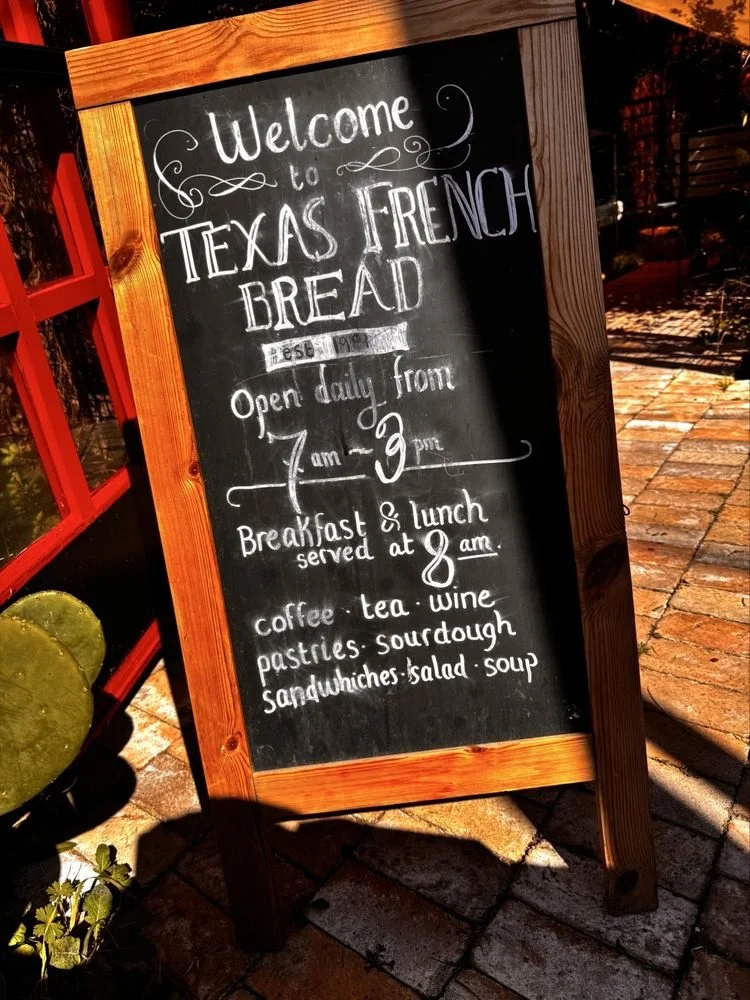 Welcome
to
TEXAS FRENCH
BREAD
est 1981
Open daily from
7 am ~ 3 pm
Breakfast & lunch
served at 8 am.
coffee · tea · wine
pastries · sourdough
sandwhiches · salad · soup